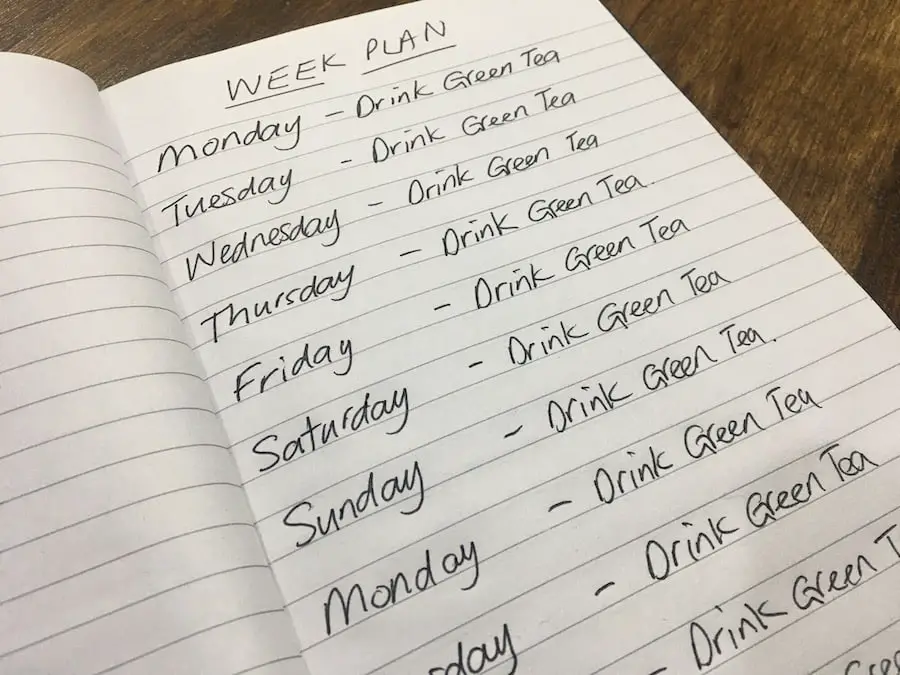 WEEK PLAN
Monday - Drink Green Tea
Tuesday - Drink Green Tea
Wednesday - Drink Green Tea
Thursday - Drink Green Tea.
Friday - Drink Green Tea
Saturday - Drink Green Tea
Sunday - Drink Green Tea.
Monday - Drink Green Tea
sday - Drink Green Tea
- Drink Green T